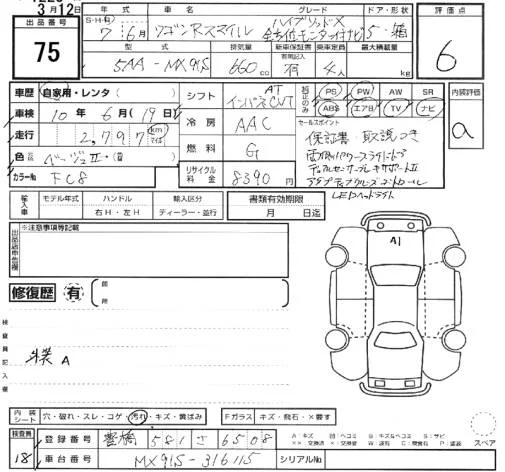 3月12日
出品番号
75
年式 車名 グレード ドア・形状
S・H・R
7年6月 ワゴンRスマイル ハイブリッドX
全方位モニター付ナビ 5・箱
評価点
6
型式 排気量 新車保証書 乗車定員 最大積載量
有効記入
5AA-MX91S 660cc 有 4人 kg
車歴 自家用・レンタ
車検 10年6月(19日)
走行 2,797 km マイル
色 ベージュII
カラーNo FC8
シフト AT
インパネCVT
冷房 AAC
燃料 G
リサイクル料金 8390円
純正のみ PS PW AW SR
ABS エアB TV ナビ
内装評価
a
セールスポイント
保証書・取説つき
両側パワースライドドア
デュアルセンサーブレーキサポートII
アダプティブクルーズコントロール
LEDヘッドライト
輸入車 モデル年式 ハンドル 輸入区分 書類有効期限
右H・左H ディーラー・並行 月 日迄
※注意事項等記載
出品店申告欄
修復歴 有
箇所
検査員記入欄
A1
内装シート 穴・破れ・スレ・コゲ・汚れ・キズ・黄ばみ Fガラス キズ・飛石・×要す
検査員
18
登録番号 豊橋 581 さ 6508
車台番号 MX91S-316115 シリアルNo
スペア